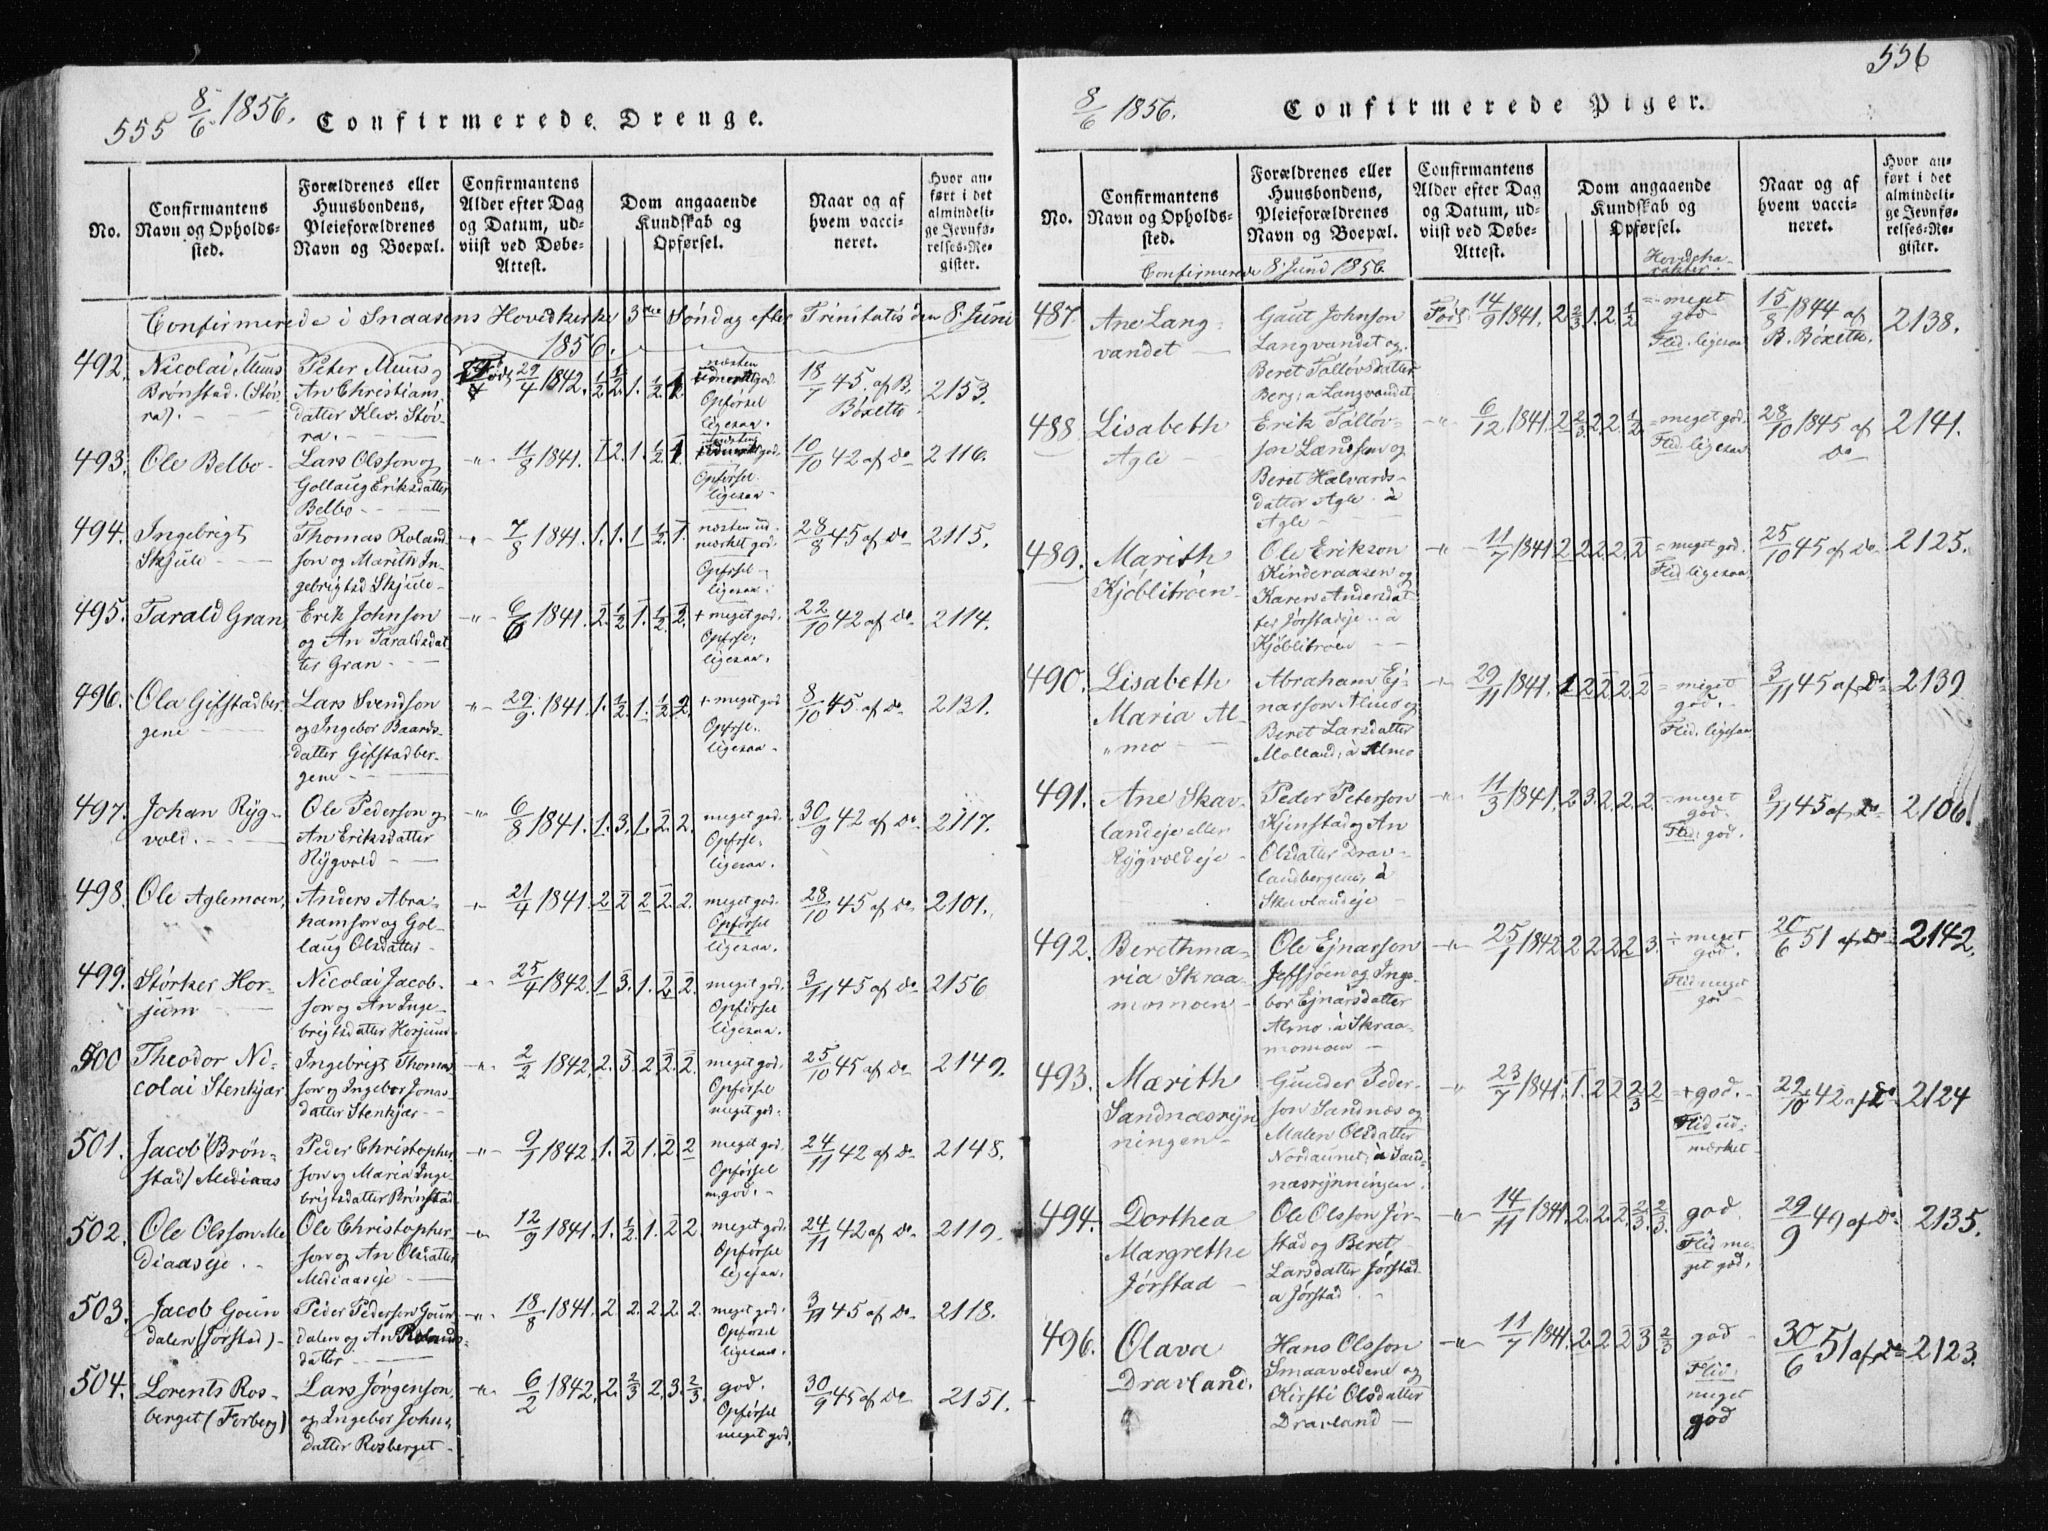 555 8/6 1856. Confirmerede Drenge.
No.
Confirmantens
Navn og Opholds-
sted.
Forældrenes eller
Huusbondens,
Pleieforældrenes
Navn og Boepæl.
Confirmantens
Alder efter Dag
og Datum, ud-
viist ved Døbe-
Attest.
Dom angaaende
Kundskab og
Opførsel.
Naar og af
hvem vacci-
neret.
Hvor an-
ført i det
almindeli-
ge Jevnfø-
relses-Re-
gister.
Confirmerede i Snaasens Hovidkirke 3die Søndag efter Trinitatis den 8 Juni
1856.
492. Nicolai Muus
Brønstad. (Støv-
ra).
Peter Muus og
An Christians
datter Klev. Støv-
ra.
Født 29/4 1842.
næsten
udmerket god.
Opførsel
ligesaa.
18/7 45. af B.
Bøxeth
2153.
493. Ole Belbo
Lars Olsson og
Gollaug Eriksdatter
Belbo
11/8 1841.
Opførsel
ligesaa
10/10 42 af Do
2116.
494. Ingebrigt
Skjule
Thomas Roland
son og Marith In-
gebrigtsd Skjule
7/8 1841. 1. 1. 1 1/2. 1.
næsten ud-
mærket god.
Opførsel
ligesaa.
28/8 45 af Do
2115.
495. Tarald Gran
Erik Johnson
og An Taraldsdat
ter Gran
6/6 1841. 2. 1/2. 1. 1/2. 2.
+ meget god.
Opførsel
ligesaa.
22/10 42 af Do
2114.
496. Ola Gifstadber
gene
Lars Svendson
og Ingebor Baards-
datter Gifstadber-
gene
29/9. 1841. 1. 1/2. 1. 1/2. 2.
+ meget god
Opførsel
ligesaa
8/10 45. af Do
2131.
497. Johan Ryg-
vold.
Ole Pederson og
An Eriksdatter
Rygvold
6/8 1841. 1. 3. 1. 2. 2.
meget god.
Opførsel
ligesaa.
30/9 42 af Do
2117.
498. Ole Aglemoen.
Anders Abra-
hamson og Gol-
laug Olsdatter
21/4 1841. 2 2 2 2. 2.
meget god.
Opførsel
ligesaa.
28/10 45 af Do
2101.
499. Størker Hor-
jum
Nicolai Jacob-
son og An Inge-
brigtsdatter Horjum
25/4 1842. 1. 3. 1. 2. 2.
meget god.
Opførsel
ligesaa.
3/11 45 af Do
2156
500 Theodor Ni-
colai Stenkjær
Ingebrigt Thomas
son og Ingebor Jonas-
datter Stenkjær
2/2 1842. 2. 3. 2 2. 2.
meget god.
Opførsel
meget god.
25/10 45 af Do
2149.
501. Jacob (Brøn-
stad) Mediaas
Peder Christopher
son og Maria Inge-
brigtsdatter Brønstad
9/1 1842. 1. 2 1. 2 2
meget god.
Opførsel
m. god.
24/11 42 af Do
2148.
502. Ole Olsson Me
diaaseje.
Ole Christopher
son og An Olsdatter
Mediaaseje
12/9 1841. 1. 1/2. 1. 2 2.
meget god.
Opførsel
ligesaa.
24/11 42 af Do
2119.
503. Jacob Goun
dalen (Jørstad)
Peder Pederson Goun
dalen og An
datter
18/8 1841. 2 2. 2. 2. 2.
meget god.
Opførsel
ligesaa.
3/11 45 af Do
2118.
504. Lorents Ros-
berget (Forberg)
Lars Jørgenson
og Ingebor Johns
datter Rosberget
6/2 1842. 2. 2/3 2. 3. 2/3.
god.
Opførsel
meget god.
30/9 45 af Do
2151.
556
8/6 1856. Confirmerede Piger.
No.
Confirmantens
Navn og Opholds-
sted.
Forældrenes eller
Huusbondens,
Pleieforældrenes
Navn og Boepæl.
Confirmantens
Alder efter Dag
og Datum, ud-
viist ved Døbe-
Attest.
Dom angaaende
Kundskab og
Opførsel.
Hovidcha-
rakter.
Naar og af
hvem vacci-
neret.
Hvor an-
ført i det
almindeli-
ge Jevnfø-
relses-Re-
gister.
Confirmerede 8 Juni 1856.
487. Ane Lang-
vandet
Gaut Johnson
Langvandet og
Beret Tolløvsdatter
Berg; a Langvandet
Født 14/9 1841. 2 2/3 1. 2. 1/2
= meget
god
Flid. ligesaa
15/8 1844 af
B. Bøxeth.
2138.
488. Lisabeth
Agle
Erik Tolløv-
son Landson og
Beret Halvards-
datter Agle. à
Agle
6/12 1841. 2 2/3. 2. 2. 1/2
= meget god.
Flid. ligesaa
28/10 1845 af
Do
2141.
489. Marith
Kjøblitrøen
Ole Erikson
Kinderaasen og
Karen Andersdat
ter Jørstadeje. à
Kjøblitrøen
11/7 1841 2 2. 2 2. 2
= meget god.
Flid. ligesaa
25/10 45 af Do
2125.
490. Lisabeth
Maria Al-
mo
Abraham Ej-
narson Almo og
Beret Larsdatter
Molland; à Almo
29/11 1841. 1 2 2 2 2
= meget
god.
Flid. ligesaa
3/11 45 af Do
2139.
491. Ane Skav-
landeje eller
Rygvoldeje
Peder Peterson
Kjenstad og An
Olsdatter Drav-
landbergene, à
Skavlandeje
11/3 1841. 2. 3. 2. 2. 2.
= meget
god.
Flid: god.
3/11 45 af Do
2106
492. Berethma-
ria Skraa-
momoen
Ole Ejnarson
Jefsjøen og Inge-
bor Ejnarsdatter
Almo. à Skraa-
momoen
25/1 1842 2 2 2 2. 3.
÷ meget
god.
Flid meget
god
20/6 51 af Do
2142.
493. Marith
Sandnæsryn
ningen
Gunder Peder-
son Sandnæs og
Malen Olsdatter
Nordaunet; à Sand-
næsrynningen
23/7 1841. 1. 2 2 2/3 2
+ god.
Flid ud-
mærket
29/10 42 af Do
2124
494. Dorthea
Margrethe
Jørstad
Ole Olsson Jør-
stad og Beret
Larsdatter Jørstad
a Jørstad.
14/11 1841. 2. 2. 2. 2/3. 2/3.
god
Flid me-
get god.
29/9 49 af Do
2135.
496. Olava
Dravland.
Hans Olsson
Smaavoldene og
Kirsti Olsdatter
Dravland
11/7 1841. 2. 2 2 3 2/3
god
Flid:
meget
god
30/6 51 af Do
2123.